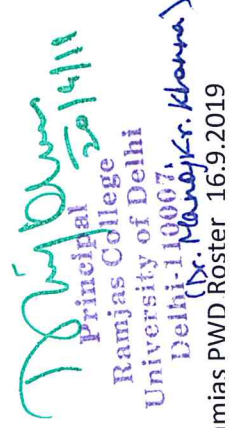 20/9/19
Principal
Ramjas College
University of Delhi
Delhi-110007
(Dr. Manoj Kr. Khanna)
mjas PWD Roster 16.9.2019